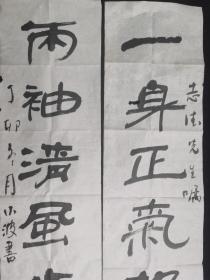 一身正氣
志法先生嘱
两袖清風
丁卯冬月 小波書